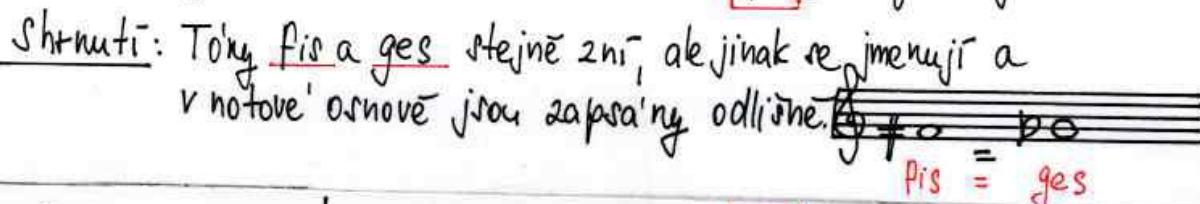 Shrnutí: Tóny fis a ges stejně zní, ale jinak se jmenují a
v notové osnově jsou zapsány odlišně.
=
fis = ges